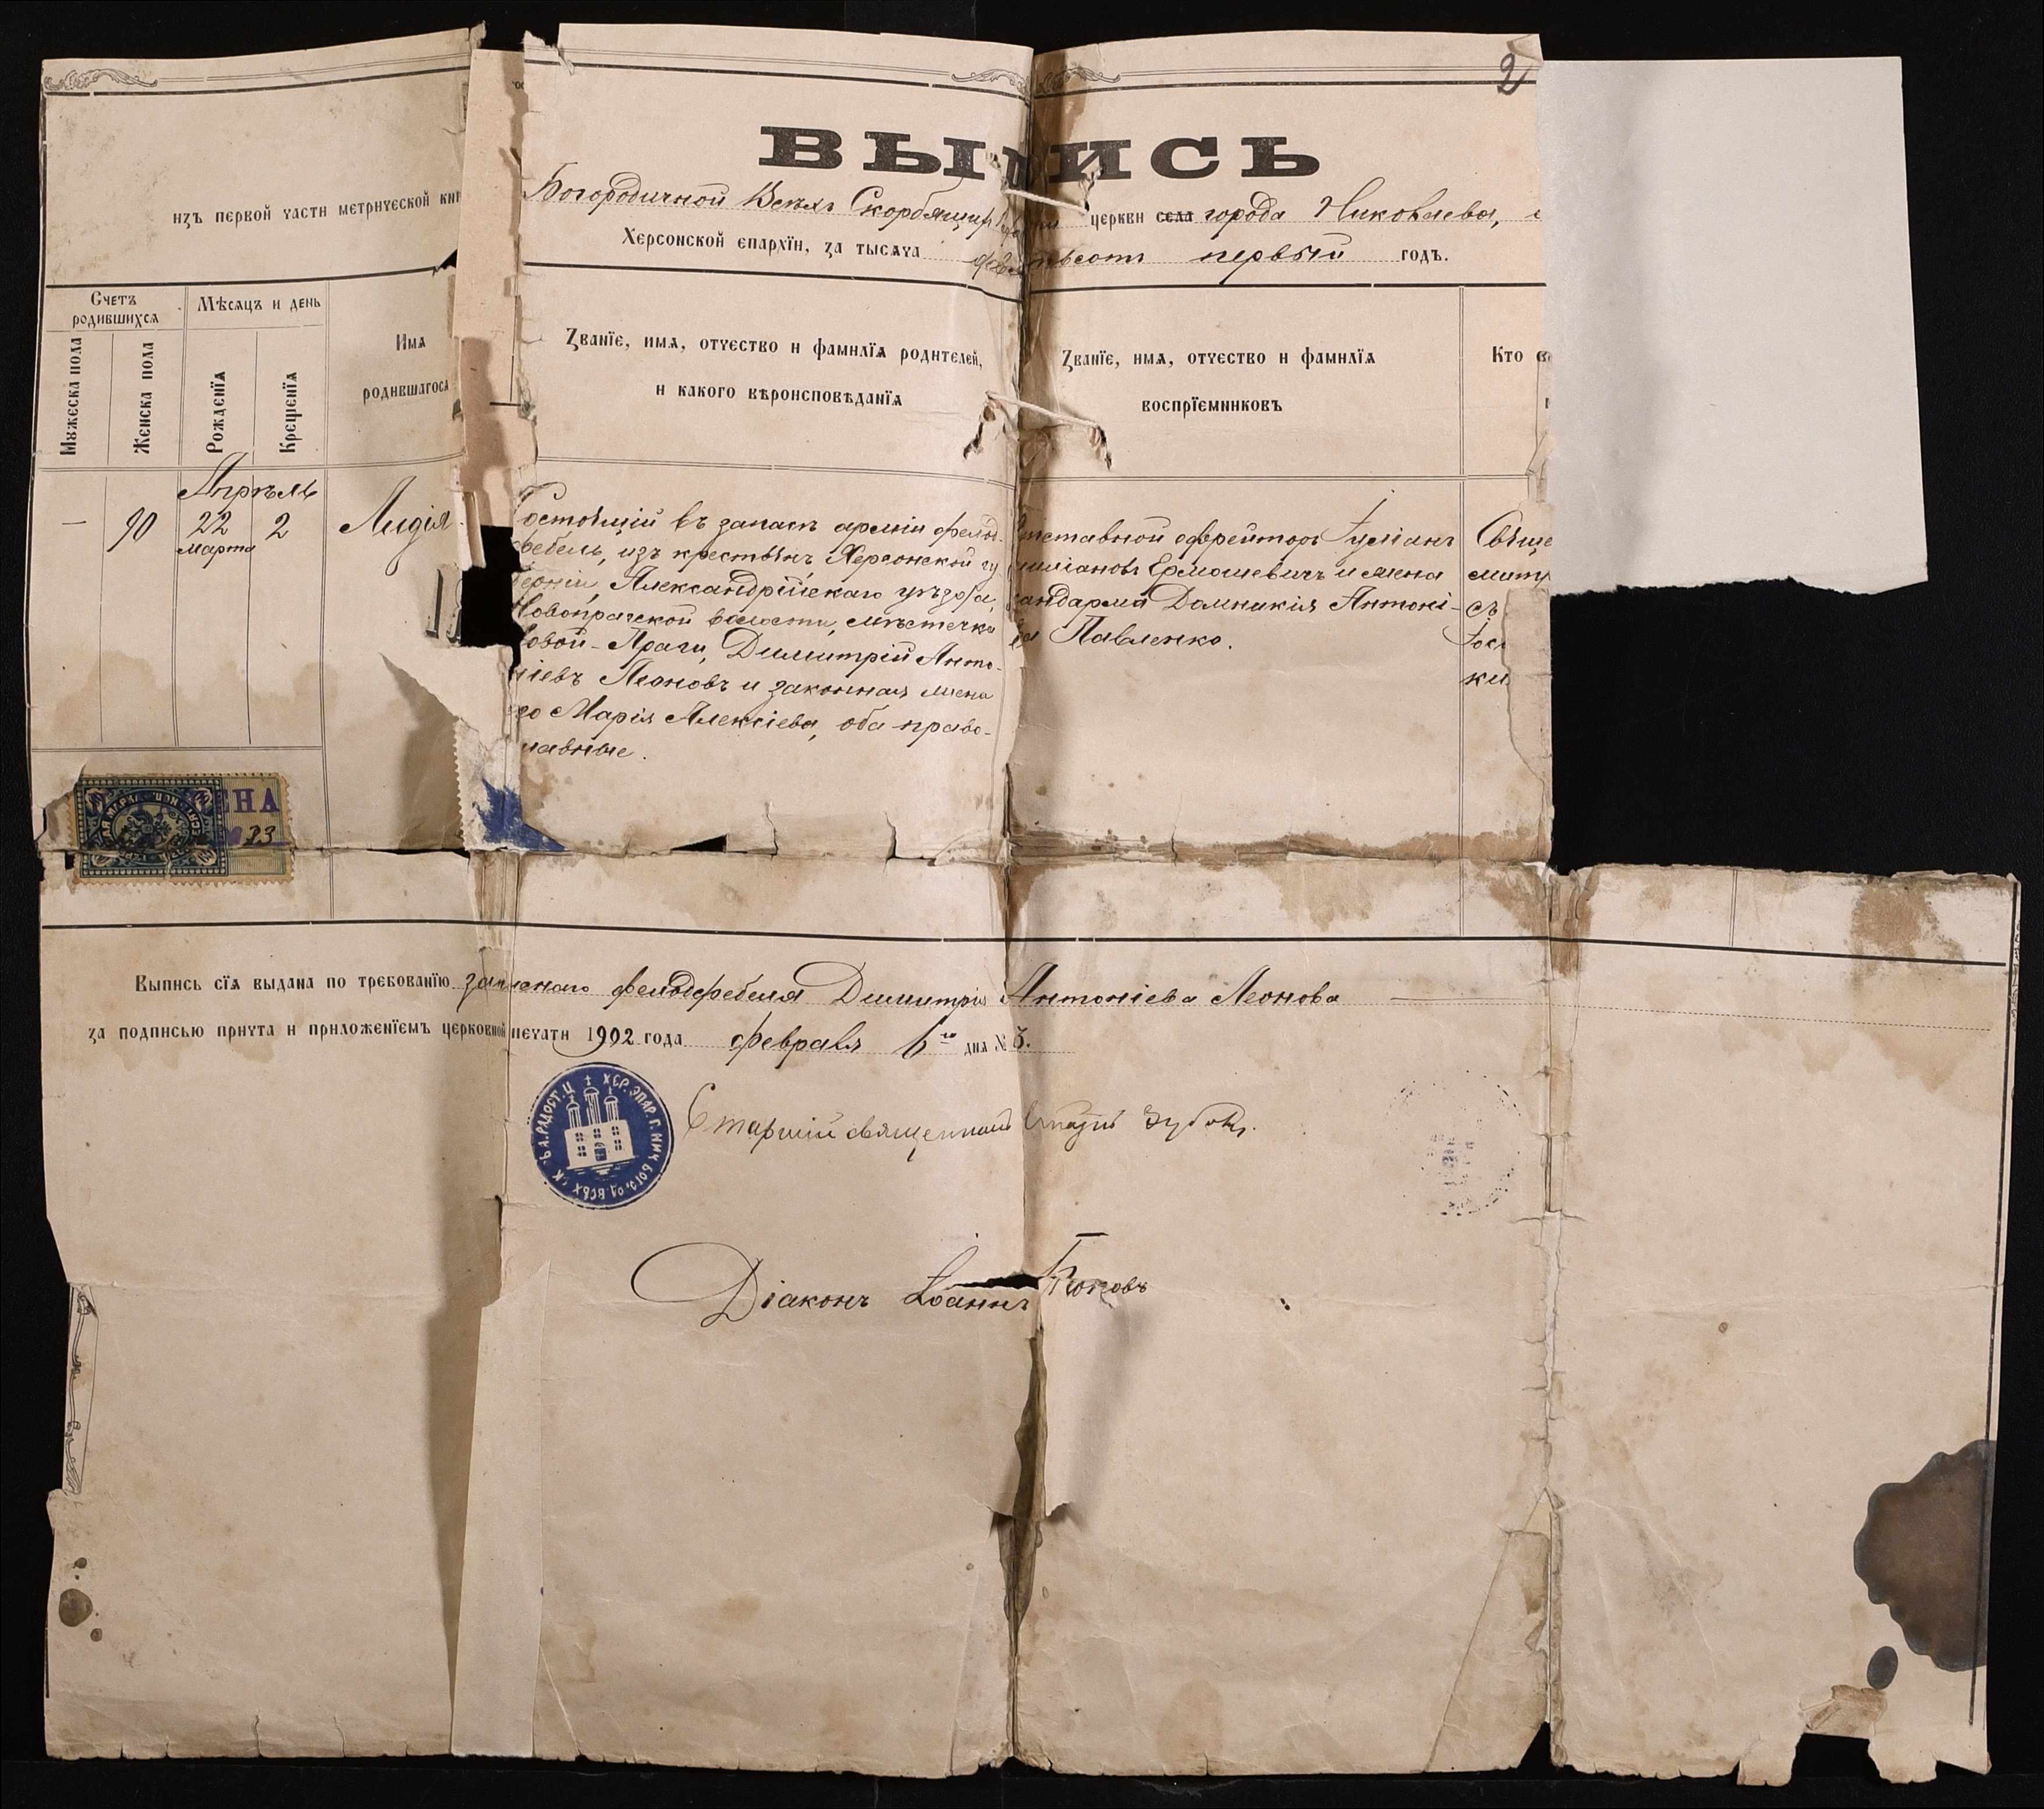 2
ВЫПИСЬ
изъ первой части метрической кни
Богородичной Всѣхъ Скорбящихъ церкви села города Николаева,
Херсонской епархїи, за тысяча девятьсотъ первый годъ.
Счетъ родившихся
Мѣсяцъ и день
Мужеска пола
Женска пола
Рожденїя
Крещенїя
Имя
родившагося
Званїе, имя, отчество и фамилїя родителей,
и какого вѣроисповѣданїя
Званїе, имя, отчество и фамилїя
воспрїемниковъ
Кто
Апрѣль
—
90
22
марта
2
Лидія
Состоящій въ запасѣ арміи фельд-
фебель, изъ крестьянъ Херсонской гу
берніи, Александрійскаго уѣзда,
Новопрагской волости, мѣстечка
Новой-Праги, Димитрій Анто-
ніевъ Леоновъ и законная жена
его Марія Алексіева, оба право-
славные.
Отставной ефрейторъ Іуліанъ
Ермошевичъ и жена
жандарма Домникія Антоні-
ева Павленко.
Свяще
мит
съ
Іос
ки
ЕНА
33
Выпись сїя выдана по требованїю запаснаго фельдфебеля Димитрія Антоніева Леонова —
за подписью причта и приложенїемъ церковной печати 1902 года февраля 6го дня № 3.
Х.К. ХЕР. ЭПАР. Г. НИК БОГ. ВСѢХ СК-Ъ А. РАДОСТ. Ц
Старшій священникъ
Діаконъ Іоаннъ Поповъ